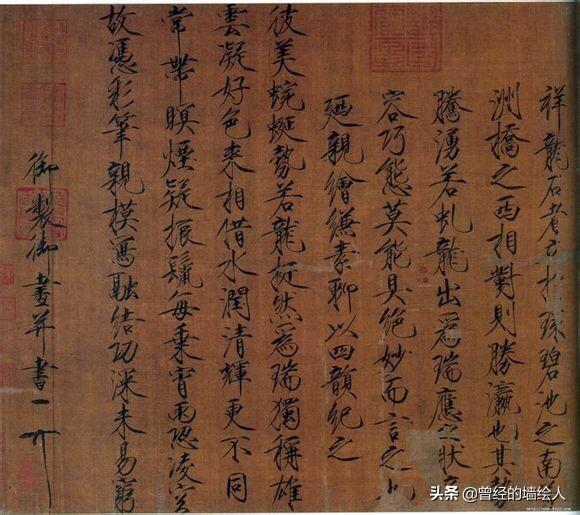 祥龍石者立於環碧池之南芳
洲橋之西相對則勝瀛也其勢
騰湧若虬龍出爲瑞應之狀奇
容巧態莫能具絕妙而言之也
廼親繪縑素聊以四韻紀之
彼美蜿蜒勢若龍挺然爲瑞獨稱雄
雲凝好色來相借水潤清輝更不同
常帶瞑煙疑振鬣每乘宵雨恐凌空
故憑彩筆親模寫融結功深未易窮
御製御畫并書
头条 @曾经的墙绘人